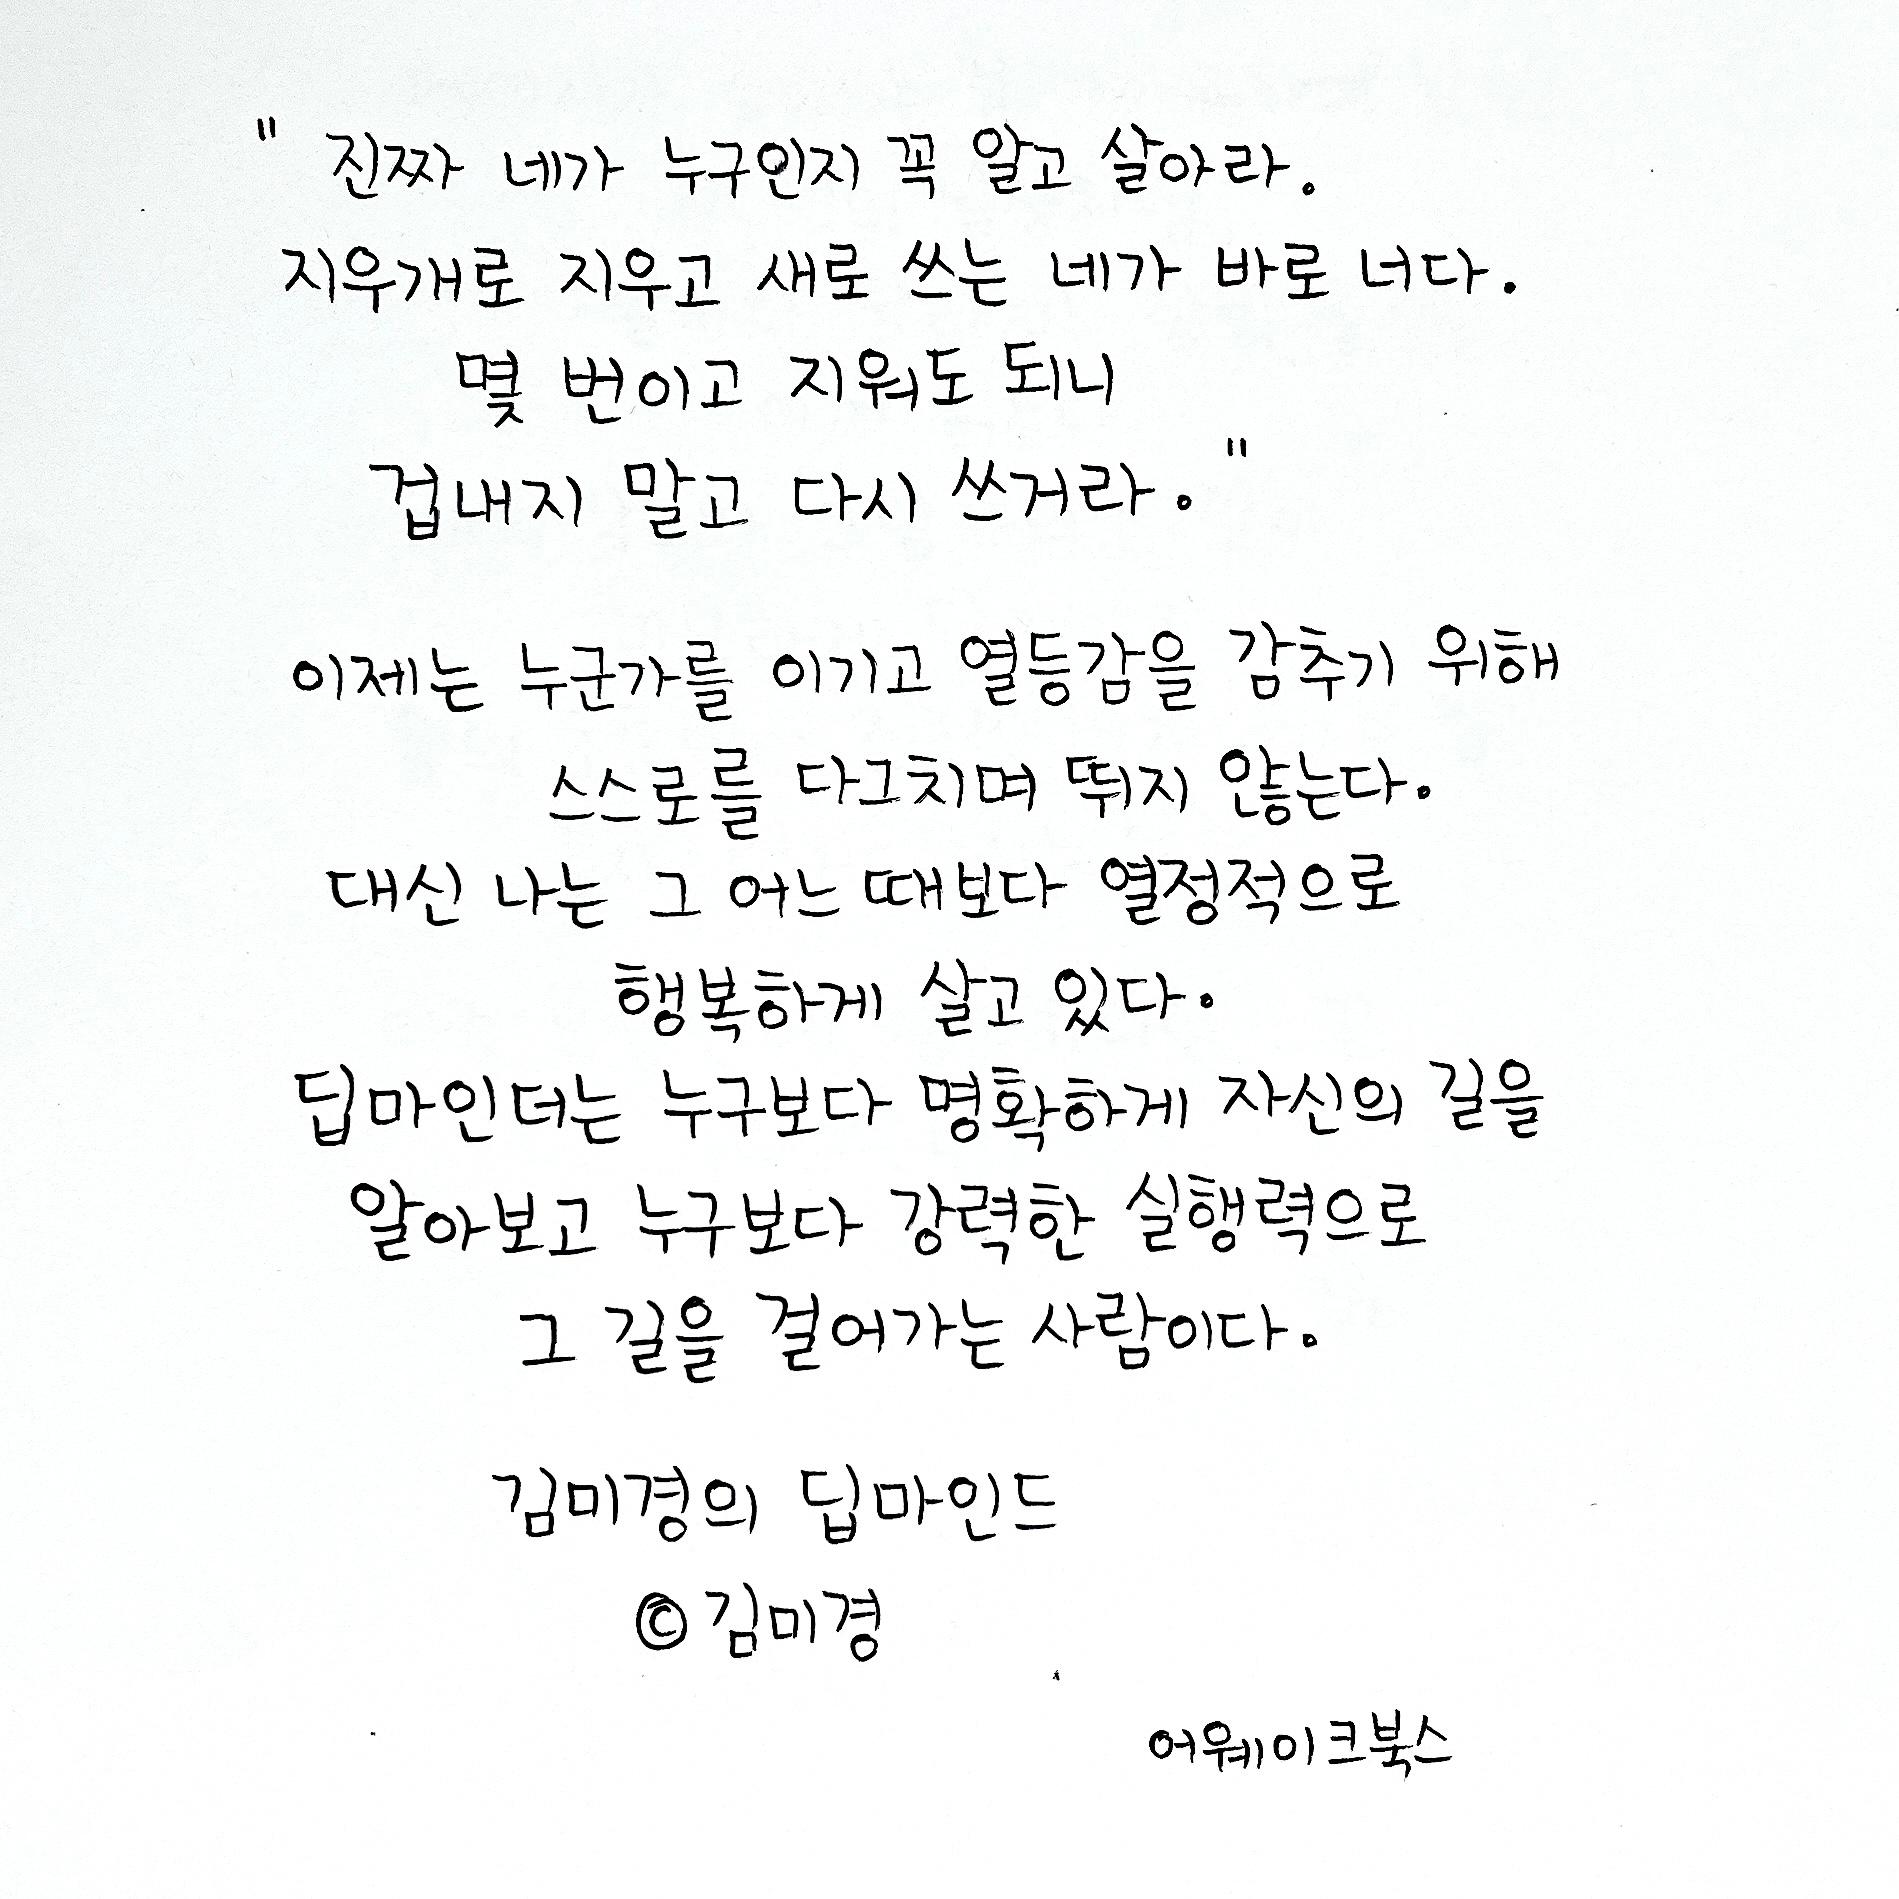 " 진짜 네가 누구인지 꼭 알고 살아라.
지우개로 지우고 새로 쓰는 네가 바로 너다.
몇 번이고 지워도 되니
겁내지 말고 다시 쓰거라. "
이제는 누군가를 이기고 열등감을 감추기 위해
스스로를 다그치며 뛰지 않는다.
대신 나는 그 어느 때보다 열정적으로
행복하게 살고 있다.
딥마인더는 누구보다 명확하게 자신의 길을
알아보고 누구보다 강력한 실행력으로
그 길을 걸어가는 사람이다.
김미경의 딥마인드
© 김미경
어웨이크북스